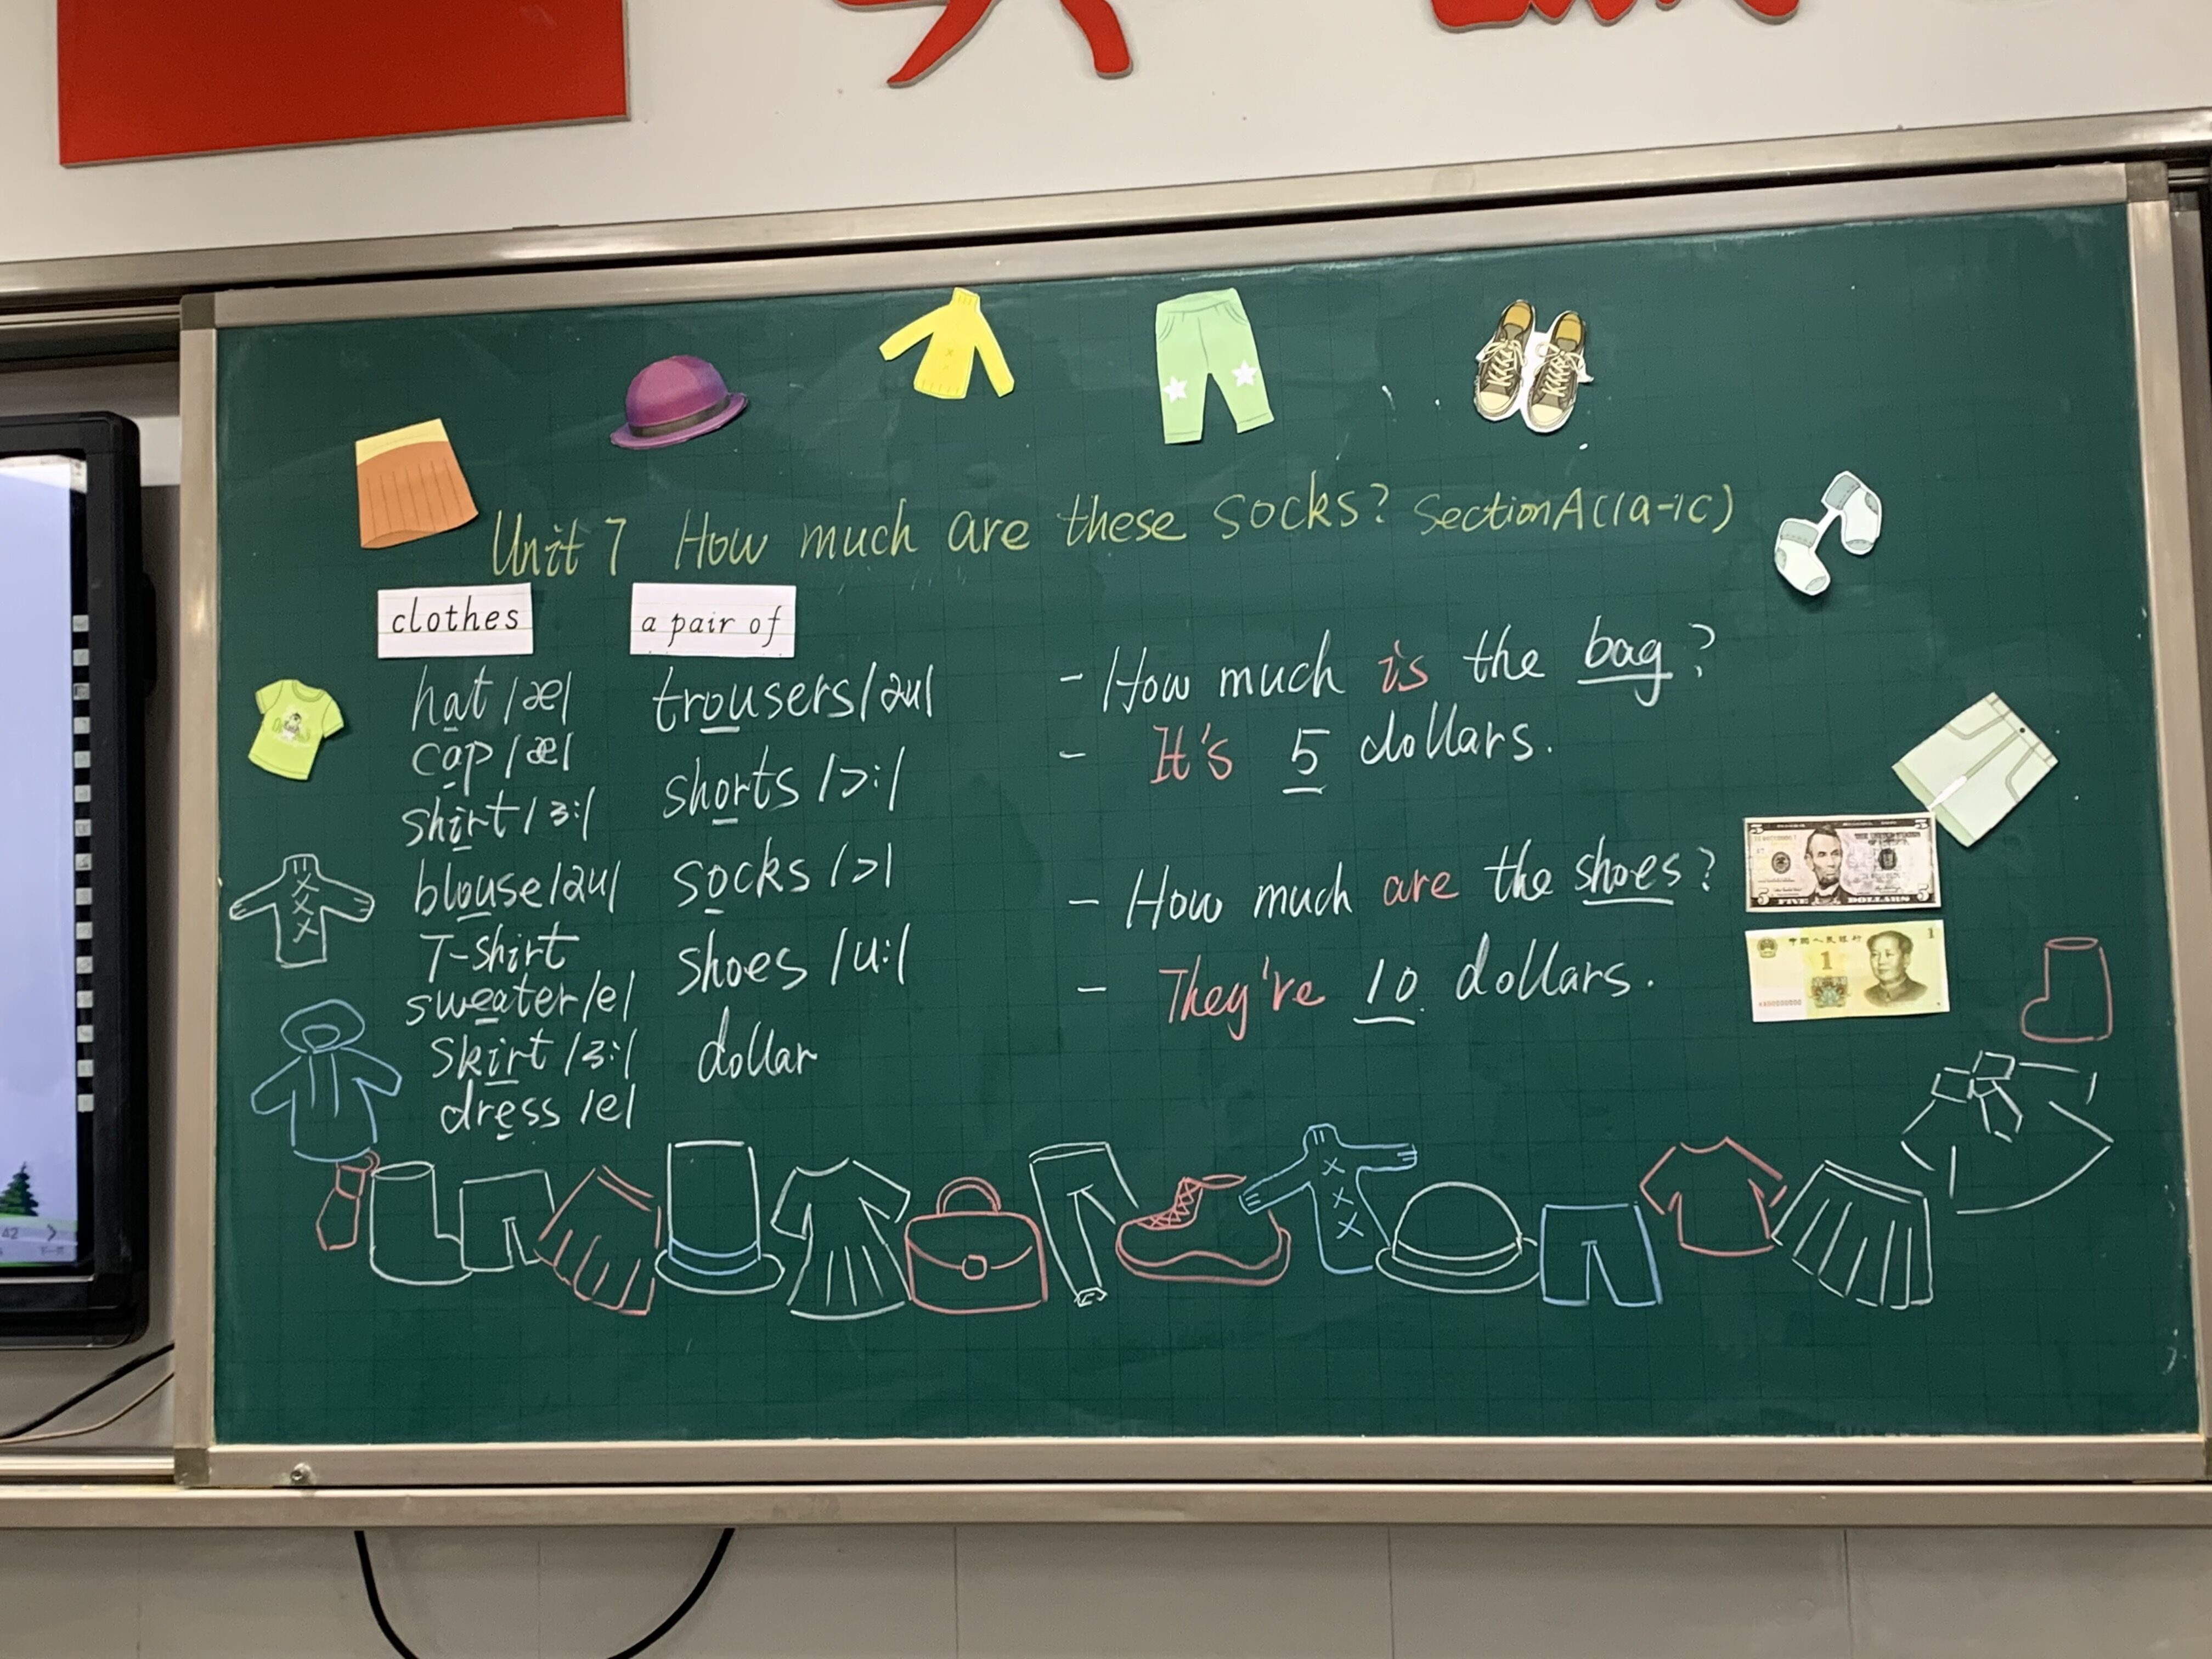 Unit 7 How much are these socks? Section A (1a-1c)
clothes
hat /æ/
cap /æ/
shirt /ɜː/
blouse /au/
T-shirt
sweater /e/
skirt /ɜː/
dress /e/
a pair of
trousers /au/
shorts /ɔː/
socks /ɔ/
shoes /uː/
dollar
- How much is the bag?
- It's 5 dollars.
- How much are the shoes?
- They're 10 dollars.
5 5
5 FIVE DOLLARS 5
中国人民银行 1
1
42